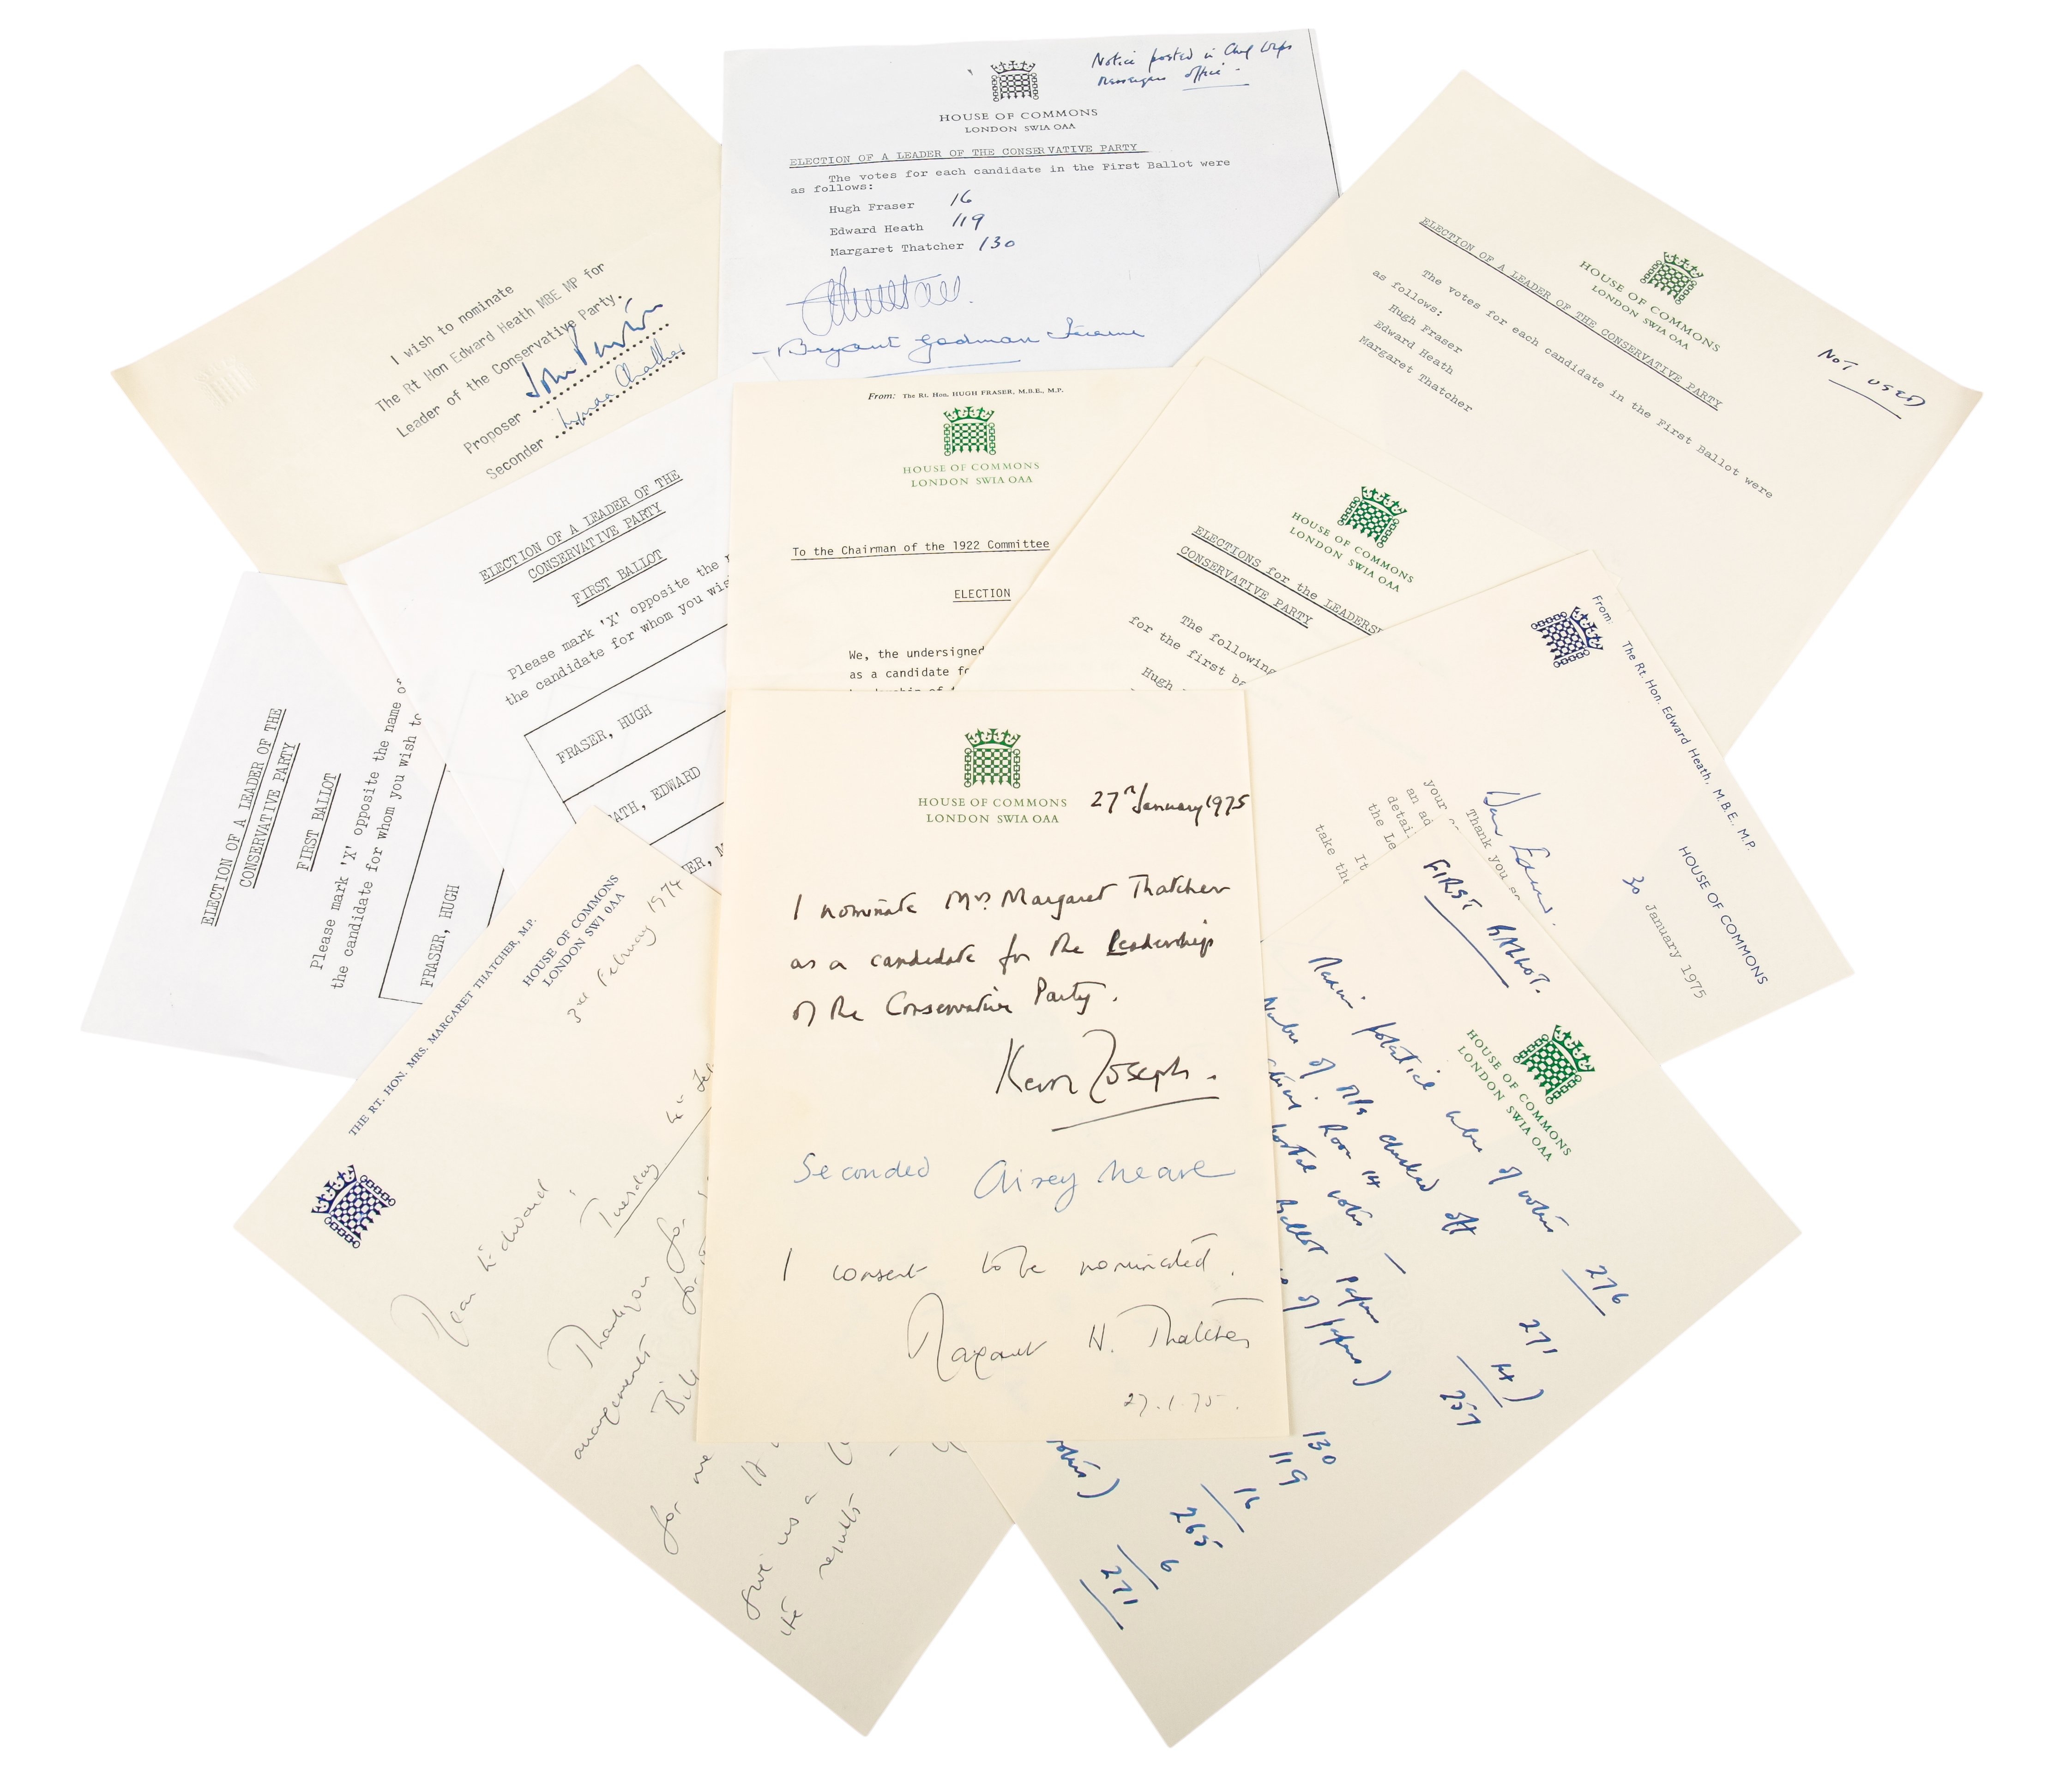 Notice posted in Chief Whips
Messengers office -
HOUSE OF COMMONS
LONDON SW1A 0AA
ELECTION OF A LEADER OF THE CONSERVATIVE PARTY
The votes for each candidate in the First Ballot were
as follows:
Hugh Fraser 16
Edward Heath 119
Margaret Thatcher 130
Bryant Godman Irvine
I wish to nominate
The Rt Hon Edward Heath MBE MP for
Leader of the Conservative Party.
Proposer
Seconder
HOUSE OF COMMONS
LONDON SW1A 0AA
NOT USED
ELECTION OF A LEADER OF THE CONSERVATIVE PARTY
The votes for each candidate in the First Ballot were
as follows:
Hugh Fraser
Edward Heath
Margaret Thatcher
ELECTION OF A LEADER OF THE
CONSERVATIVE PARTY
FIRST BALLOT
Please mark 'X' opposite the
the candidate for whom you wis
FRASER, HUGH
ATH, EDWARD
ER, M
From: The Rt. Hon. HUGH FRASER, M.B.E., M.P.
HOUSE OF COMMONS
LONDON SW1A 0AA
To the Chairman of the 1922 Committee
ELECTION
We, the undersigned
as a candidate fo
HOUSE OF COMMONS
LONDON SW1A 0AA
ELECTIONS for the LEADERS
CONSERVATIVE PARTY
The following
for the first ba
Hugh
ELECTION OF A LEADER OF THE
CONSERVATIVE PARTY
FIRST BALLOT
Please mark 'X' opposite the name of
the candidate for whom you wish to
FRASER, HUGH
From: The Rt. Hon. Edward Heath, M.B.E., M.P.
HOUSE OF COMMONS
30 January 1975
Dear Edward.
Thank you
your
an ad
detai
the Le
It
take the
THE RT. HON. MRS. MARGARET THATCHER, M.P.
HOUSE OF COMMONS
LONDON SW1 0AA
3rd February 1974
Dear Edward
Tuesday 4th Feb
Thank you for
arrangements for
Bill
for me
It
give us a
the results
HOUSE OF COMMONS
LONDON SW1A 0AA
27th January 1975
I nominate Mrs. Margaret Thatcher
as a candidate for the Leadership
of the Conservative Party.
Keith Joseph.
Seconded Airey Neave
I consent to be nominated.
Margaret H. Thatcher
27.1.75.
FIRST BALLOT.
HOUSE OF COMMONS
LONDON SW1A 0AA
potential number of votes 276
Number of MPs checked off
Room 14 271
postal votes - 14)
Ballot Papers 257
of papers)
130
119
16
265
votes) 6
271